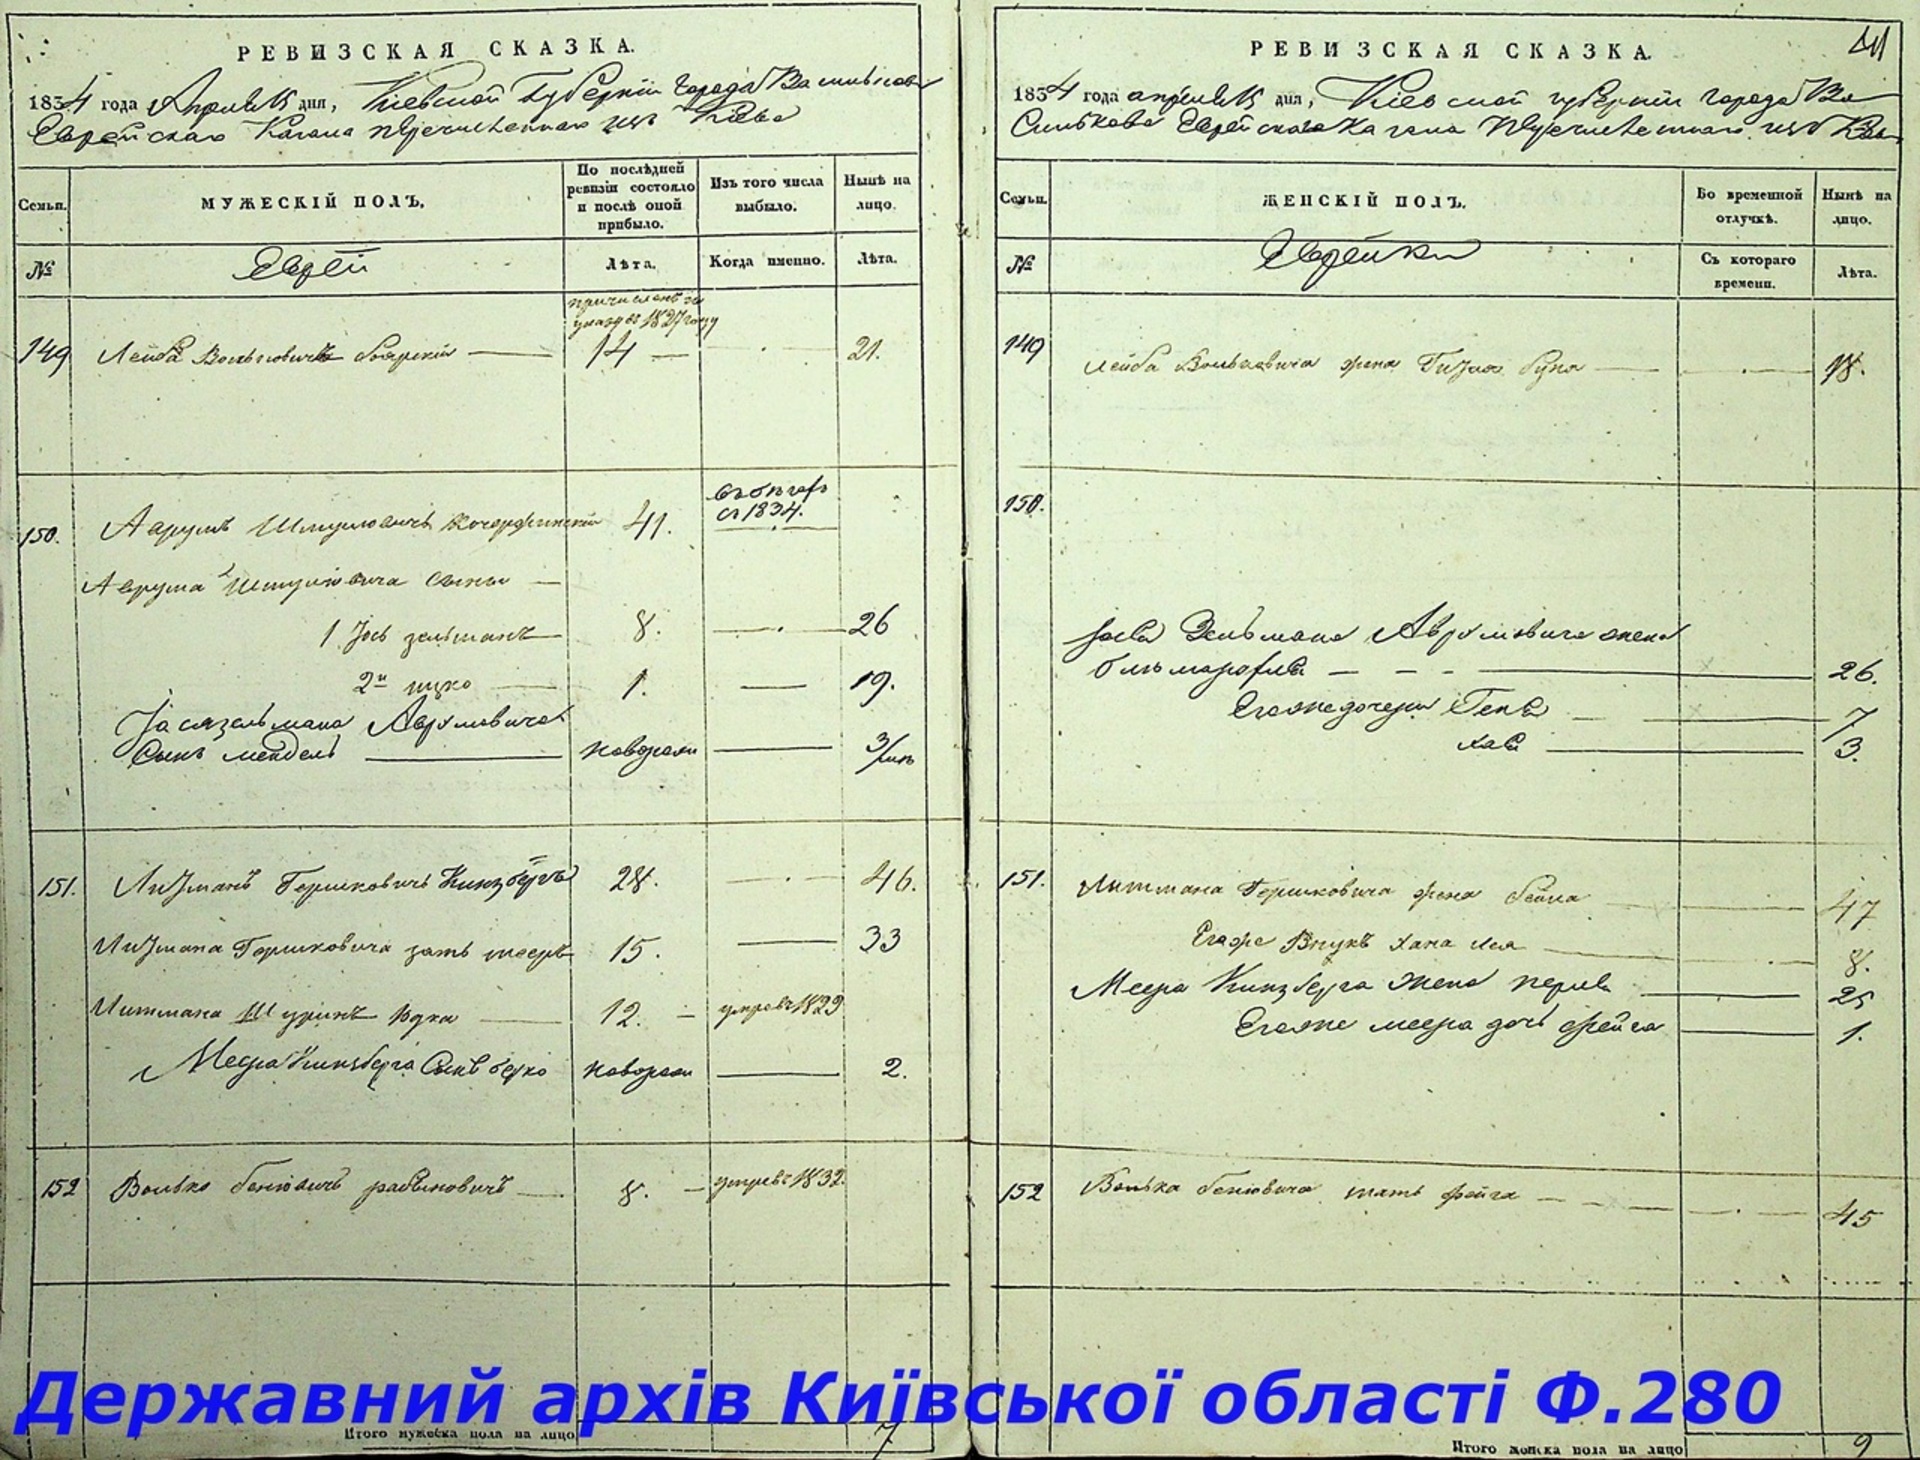 РЕВИЗСКАЯ СКАЗКА.
1834 года Апреля 15 дня, Киевской Губернии Города Василькова
Еврейскаго Кагала перечисленнаго изъ Киева
Семьи.
МУЖЕСКІЙ ПОЛЪ.
По послѣдней ревизіи состояло и послѣ оной прибыло.
Изъ того числа выбыло.
Нынѣ на лицо.
№
Евреи
Лѣта.
Когда именно.
Лѣта.
причисленъ по
указу въ 1827 году
149 Лейба Вольковичъ Боярскій 14 21.
150. Аврумъ Шмулiовичъ 41. въ бѣгахъ
съ 1834.
Аврума Шмулiовича сыны
1 Iось зельманъ 8. 26
2й ицко 1. 19.
Iося зельмана Аврумовича
Сынъ мендель новорож 3/
151. Литманъ Гершковичъ Кинзбергъ 28. 46.
Литмана Гершковича зять мееръ 15. 33
Литмана Шуринъ Юдка 12. умре въ 1829
Меера Кинзберга Сынъ берко новорож 2.
152 Волько беніовичъ рабиновичъ 8. умре въ 1832.
Итого мужеска пола на лицо 7
РЕВИЗСКАЯ СКАЗКА.
1834 года апреля 15 дня, Кіевской губерніи города Ва
силькова Еврейскаго Кагала перечисленнаго изъ
Семьи.
ЖЕНСКІЙ ПОЛЪ.
Во временной отлучкѣ.
Нынѣ на лицо.
№
Еврейки
Съ котораго времени.
Лѣта.
149 Лейба Вольковича жена Гитля 18.
150.
Iося Зельмана Аврумовича жена
26.
Егоже дочери Геня 7
хая 3.
151. Литмана Гершковича жена бейла 47
Егоже Внука хана лея 8.
Меера Кинзберга жена перля 25
Егоже меера дочь фейга 1.
152 Волька беніовича мать фейга 45
Итого женска пола на лицо 9
Державний архів Київської області Ф.280